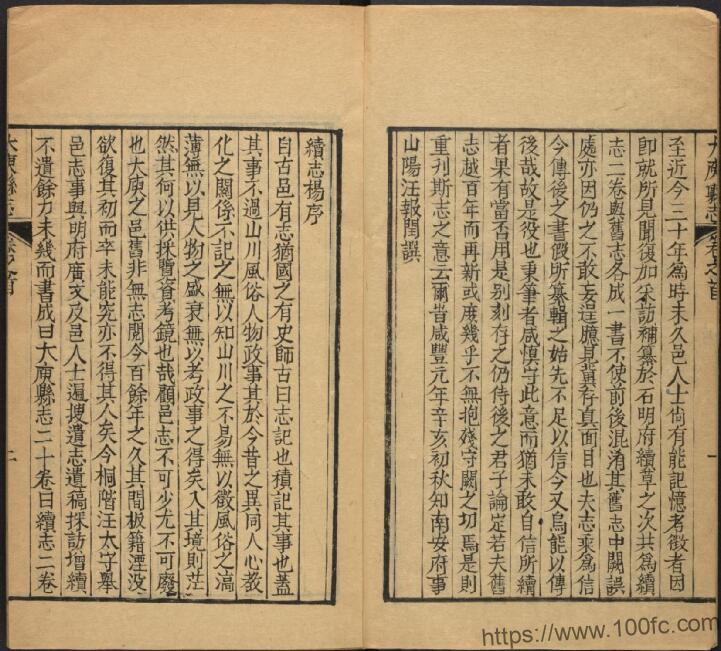 大庾縣志
卷之首
一
至近今三十年為時未久邑人士尚有能記憶者徵者因
卽就所見聞復加采訪補纂於石明府續草之次共為續
志二卷與舊志各成一書不使前後混淆其舊志中闕誤
處亦因仍之不敢妄逞臆見冀存真面目也夫志乘為信
今傳後之書假所纂輯之始先不足以信今又烏能以傳
後哉故是役也秉筆者咸慎守此意而猶未敢自信所續
者果有當否用是别刻存之仍待後之君子論定若夫舊
志越百年而再新或庶幾乎不無抱殘守闕之功焉是則
重刋斯志之意云爾昔咸豐元年辛亥初秋知南安府事
山陽汪報閏譔
續志楊序
自古邑有志猶國之有史師古曰志記也積記其事也蓋
其事不過山川風俗人物政事其於今昔之異同人心教
化之關係不記之無以知山川之不易無以徵風俗之漓
薄無以見人物之盛衰無以考政事之得矣入其境則茫
然其何以供採覽資考鏡也哉顧邑志不可少尤不可廢
也大庾之邑舊非無志閱今百餘年之久其間板籍湮没
欲復其初而卒未能究亦不得其人矣今桐階汪太守舉
邑志事與明府廣文及邑人士遍搜遺志遺稿採訪增續
不遺餘力未幾而書成曰大庾縣志二十卷曰續志二卷
大庾縣志
卷之首
二
https://www.100fc.com